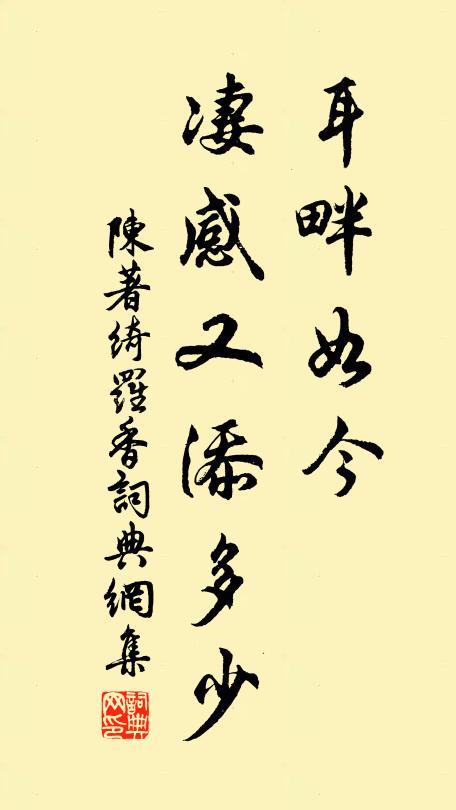 耳畔如今
淒感又添多少
陳著綺羅香詞典網集
詞典网印